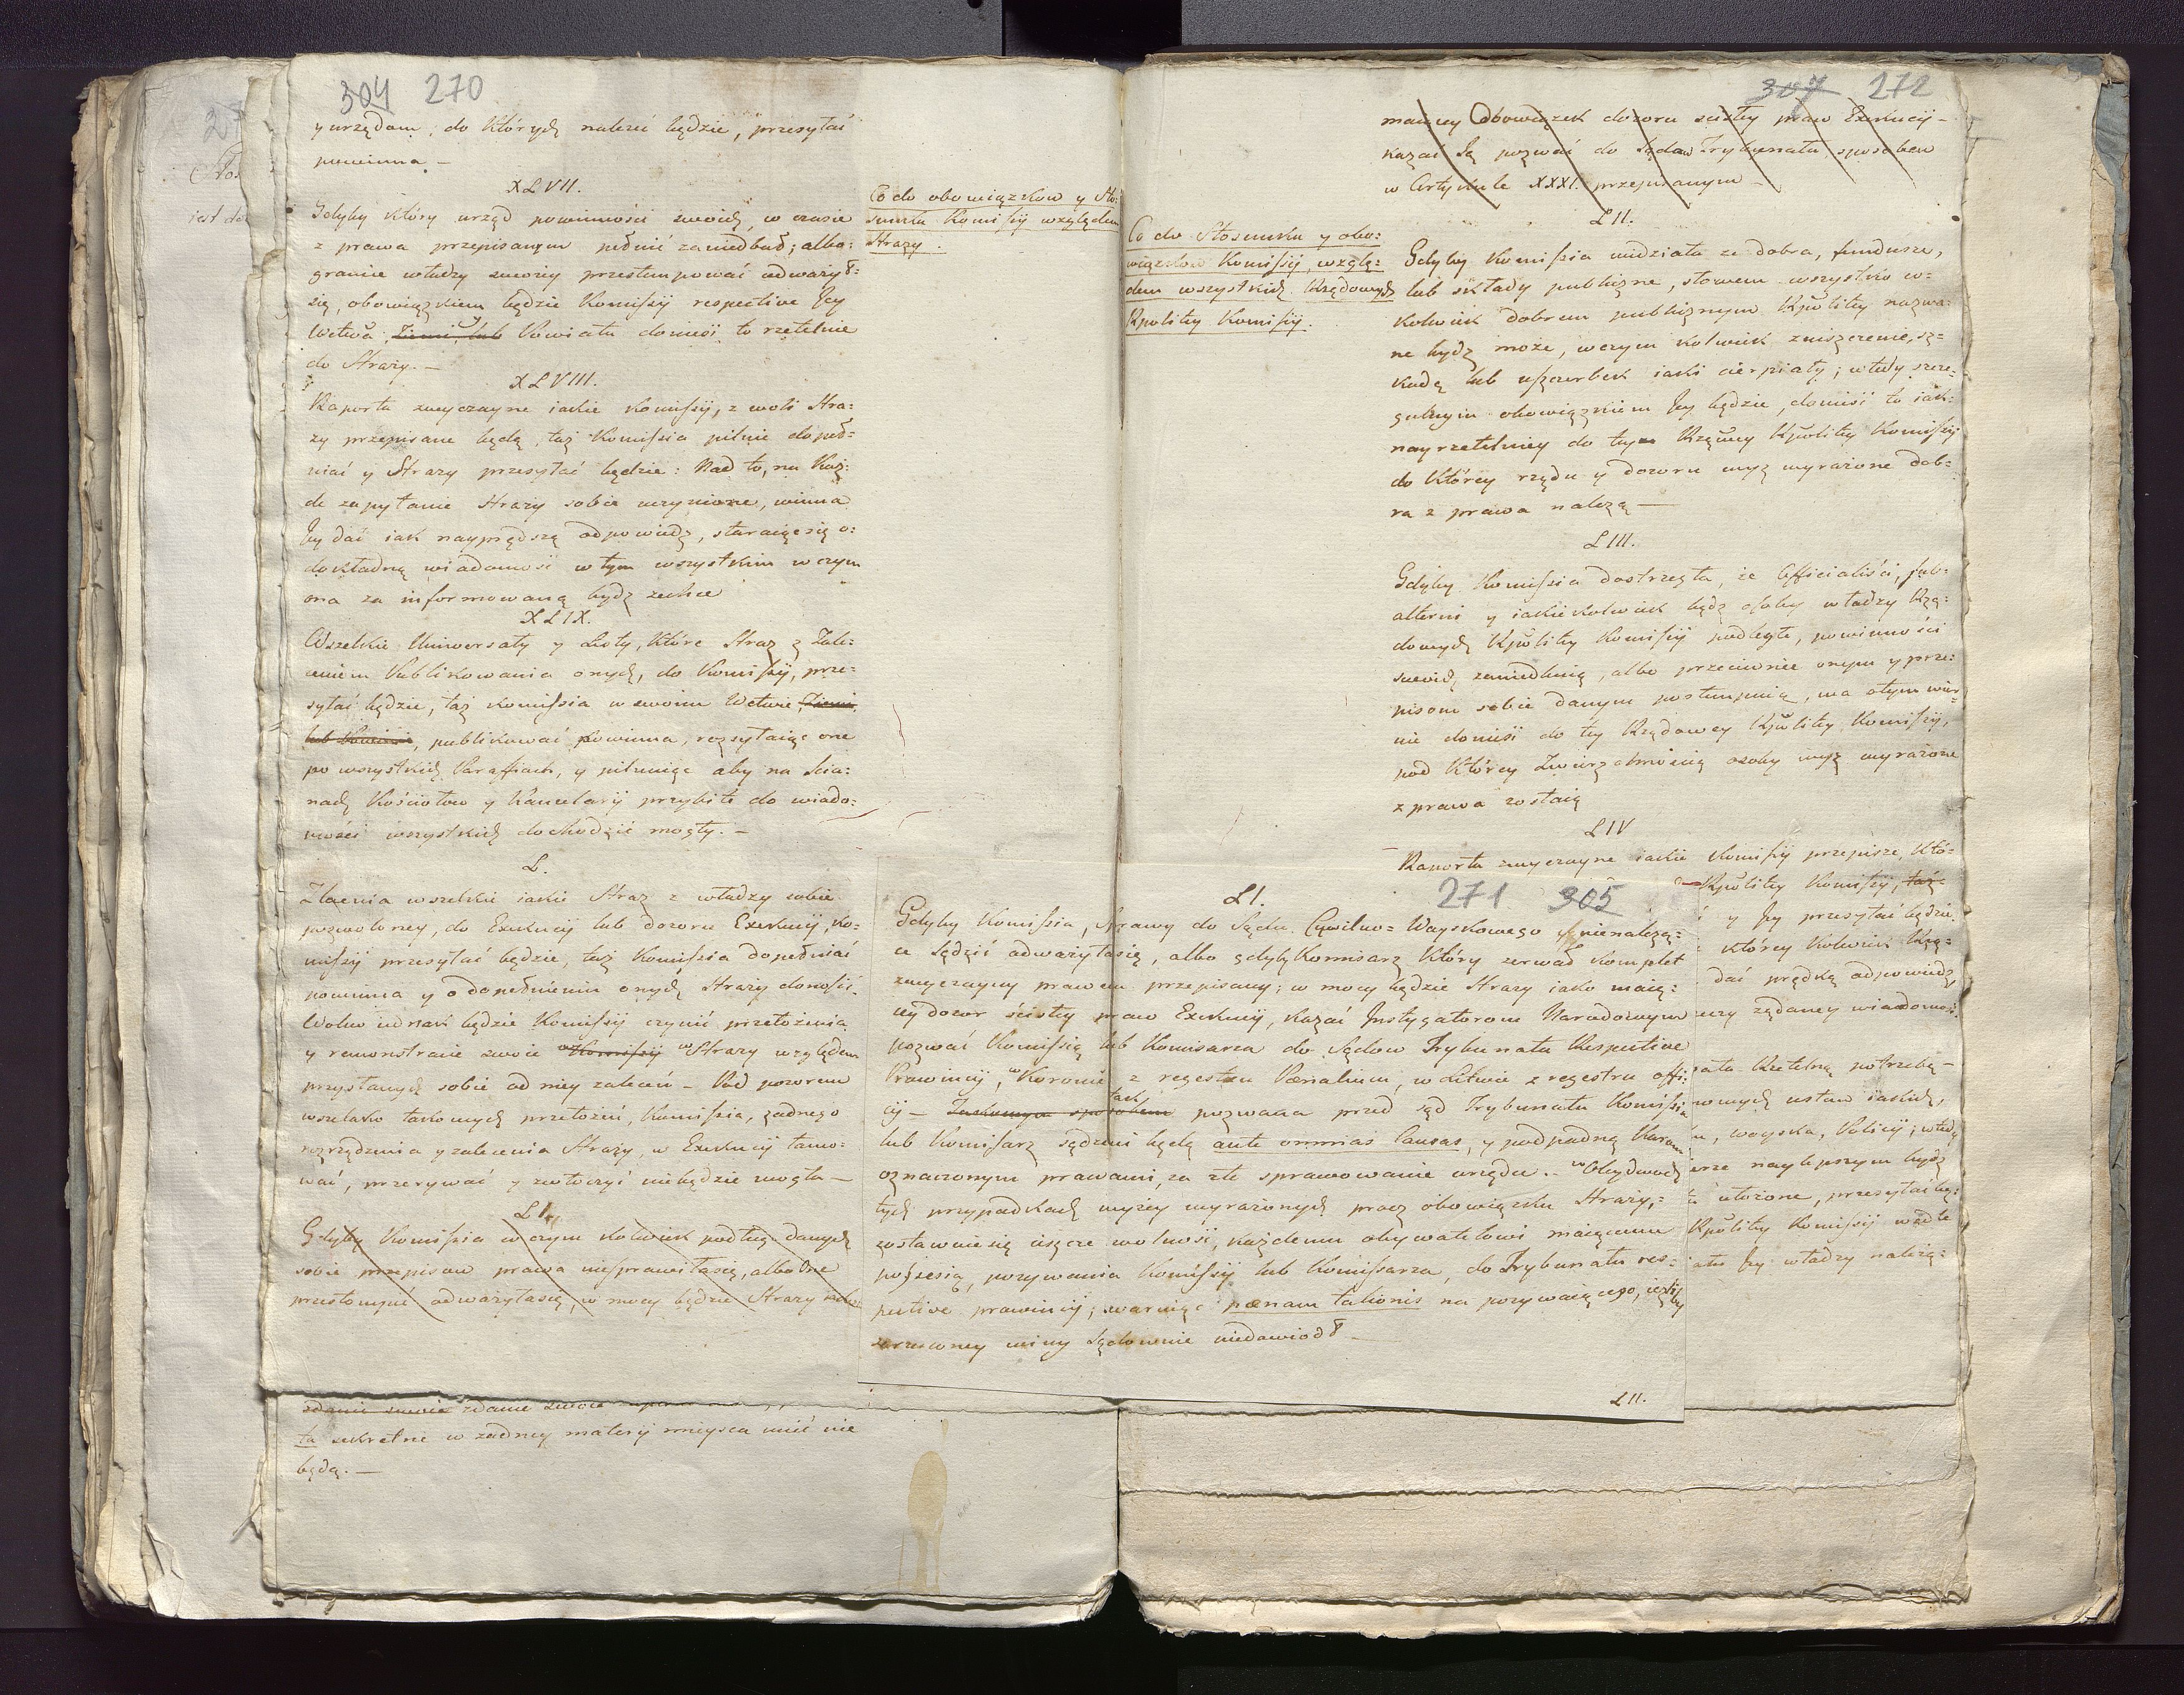 304 270
y urzędom, do których należeć będzie, przesyłać
powinna –
XLVII.
Gdyby który urząd powinności swoich, w czasie
z prawa przepisanym pełnić zaniedbał; albo
granice władzy swoiey przestempować odważył
się, obowiązkiem będzie Komissyi respective Jey
Wctwa, Ziemi, lub Powiatu donieść to rzetelnie
do Straży. –
XLVIII.
Raporta zwyczayne iakie Komissyi, z woli Stra:
ży przepisane będą, taż Komissia pilnie dopeł:
niać y Straży przesyłać będzie: Nad to, na Każ:
de zapytanie Straży sobie uczynione, winna
Jey dać iak nayprędszą odpowiedź, staraiąc się o:
dokładną wiadomość w tym wszystkim w czym
ona za informowaną bydź zechce
XLIX.
Wszelkie Uniwersały y Listy, które Straż z Zale:
ceniem Publikowania onych, do Komissyi, prze:
syłać będzie, taż Komissia w swoim Wctwie, Ziemi,
lub Powiecie, publikować powinna, rozsyłaiąc one
po wszystkich Paraffiach, y pilnuiąc aby na Scia:
nach Kościołow y Kancelaryi przybite do wiado:
mości wszystkich dochodzić mogły. –
L.
Zlecenia wszelkie iakie Straż z władzy sobie
pozwoloney, do Exekucyi lub dozoru Exekucyi, Ko:
missyi przesyłać będzie, taż Komissia dopełniać
powinna y o dopełnieniu onych Straży donosić.
Wolno iednak będzie Komissyi czynić przełożenia
y remonstracie swoie w Komissyi w Straży względem
przysłanych sobie od niey zaleceń – Pod pozorem
wszelako takowych przełożeń, Komissia, żadnego
rozrządzenia y zalecenia Straży, w Exekucyi tamo:
wać, przerywać y zwłoczyć niebędzie mogła –
LI.
Gdyby Komissia w czym kolwiek podług danych
sobie przepisow prawa niesprawiłasię, albo one
przestompić odważyłasię, w mocy będzie Straży
zdanie swoie zdanie swoie
ta sekretne w żadney materyi mieysca mieć nie
będą. –
Co do obowiązkow y Sto:
sunku Komissyi względem
Straży.
307 272
maiącey Obowiązek dozoru scisłey praw Exekucyi –
kazać Ją pozwać do Sądow Trybunału, sposobem
w Artykule XXXI. przepisanym –
Co do Stosunku y obo:
wiązkow Komissyi, wzglę:
dem wszystkich Rządowych
Rpolitey Komissyi.
LII.
Gdyby Komissia widziała że dobra, fundusze,
lub składy publiczne, słowem wszystko co:
kolwiek dobrem publicznym Rpolitey nazwa:
ne bydź może, w czym kolwiek zniszczenie, sz:
kodę lub uszczerbek iaki cierpiały; wtedy szcze:
gulnym obowiązkiem Jey będzie, donieść to iak:
nayrzetelniey do tey Rządowey Rpolitey Komissyi
do Którey rządu y dozoru wyż wyrażone dob:
ra z prawa należą –
LIII.
Gdyby Komissia dostrzegła, że Officialiści, sub:
alterni y iakiekolwiek bądź osoby władzy Rzą:
dowych Rpolitey Komissyi podległe, powinności
swoich zaniedbuią, albo przeciwnie onym y prze:
pisom sobie danym postempuią, ma o tym wier:
nie donieść do tey Rządowey Rpolitey Komissyi,
pod Którey Zwierzchnością osoby wyż wyrażone
z prawa zostaią
LIV
Raporta zwyczayne iakie Komissyi przepisze, Któ:
Rpolitey Komissyi, taż
y Jey przesyłać będzie.
którey Kolwiek Rzą:
dać prędką odpowiedź,
żądaney wiadomoś:
Rzetelną potrzebą –
ustaw iakich,
woyska, Policyi; wtedy
naylepszym bydź
ułożone, przesyłać bę:
Rpolitey Komissyi wedle
Jey władzy należą:
271 305
LI.
Gdyby Komissia, Sprawy do Sądu Cywilno = Woyskowego nienależą:
ce Sądzić odważyłasię, albo gdyby Komisarz Który zerwał Komplet
zwyczayny prawem przepisany; w mocy będzie Straży iako maią:
cey dozor ścisłey praw Exekucyi, kazać Instygatorom Narodowym
pozwać Komissią lub Komisarza do Sądow Trybunału Respective
Prowincyi, w Koronie z regestru Pœnalium, w Litwie z regestru offi:
cij – Zaskarzym sposobem tak pozwana przed sąd Trybunału Komissia
lub Komisarz sądzeni będą ante omnias Causas, y podpadną karom
oznaczonym prawami, za złe sprawowanie urzędu. – w Obydwoch
tych przypadkach wyżey wyrażonych procz obowiązku Straży, =
zostawuie się ieszcze wolność, każdemu obywatelowi maiącemu
possesią, pozywania Komissyi lub Komissarza, do Trybunału res:
pective prowincyi; waruiąc pœnam talionis na pozywaiącego, ieżliby
zarzuconey winy Sądownie niedowiodł –
LII.